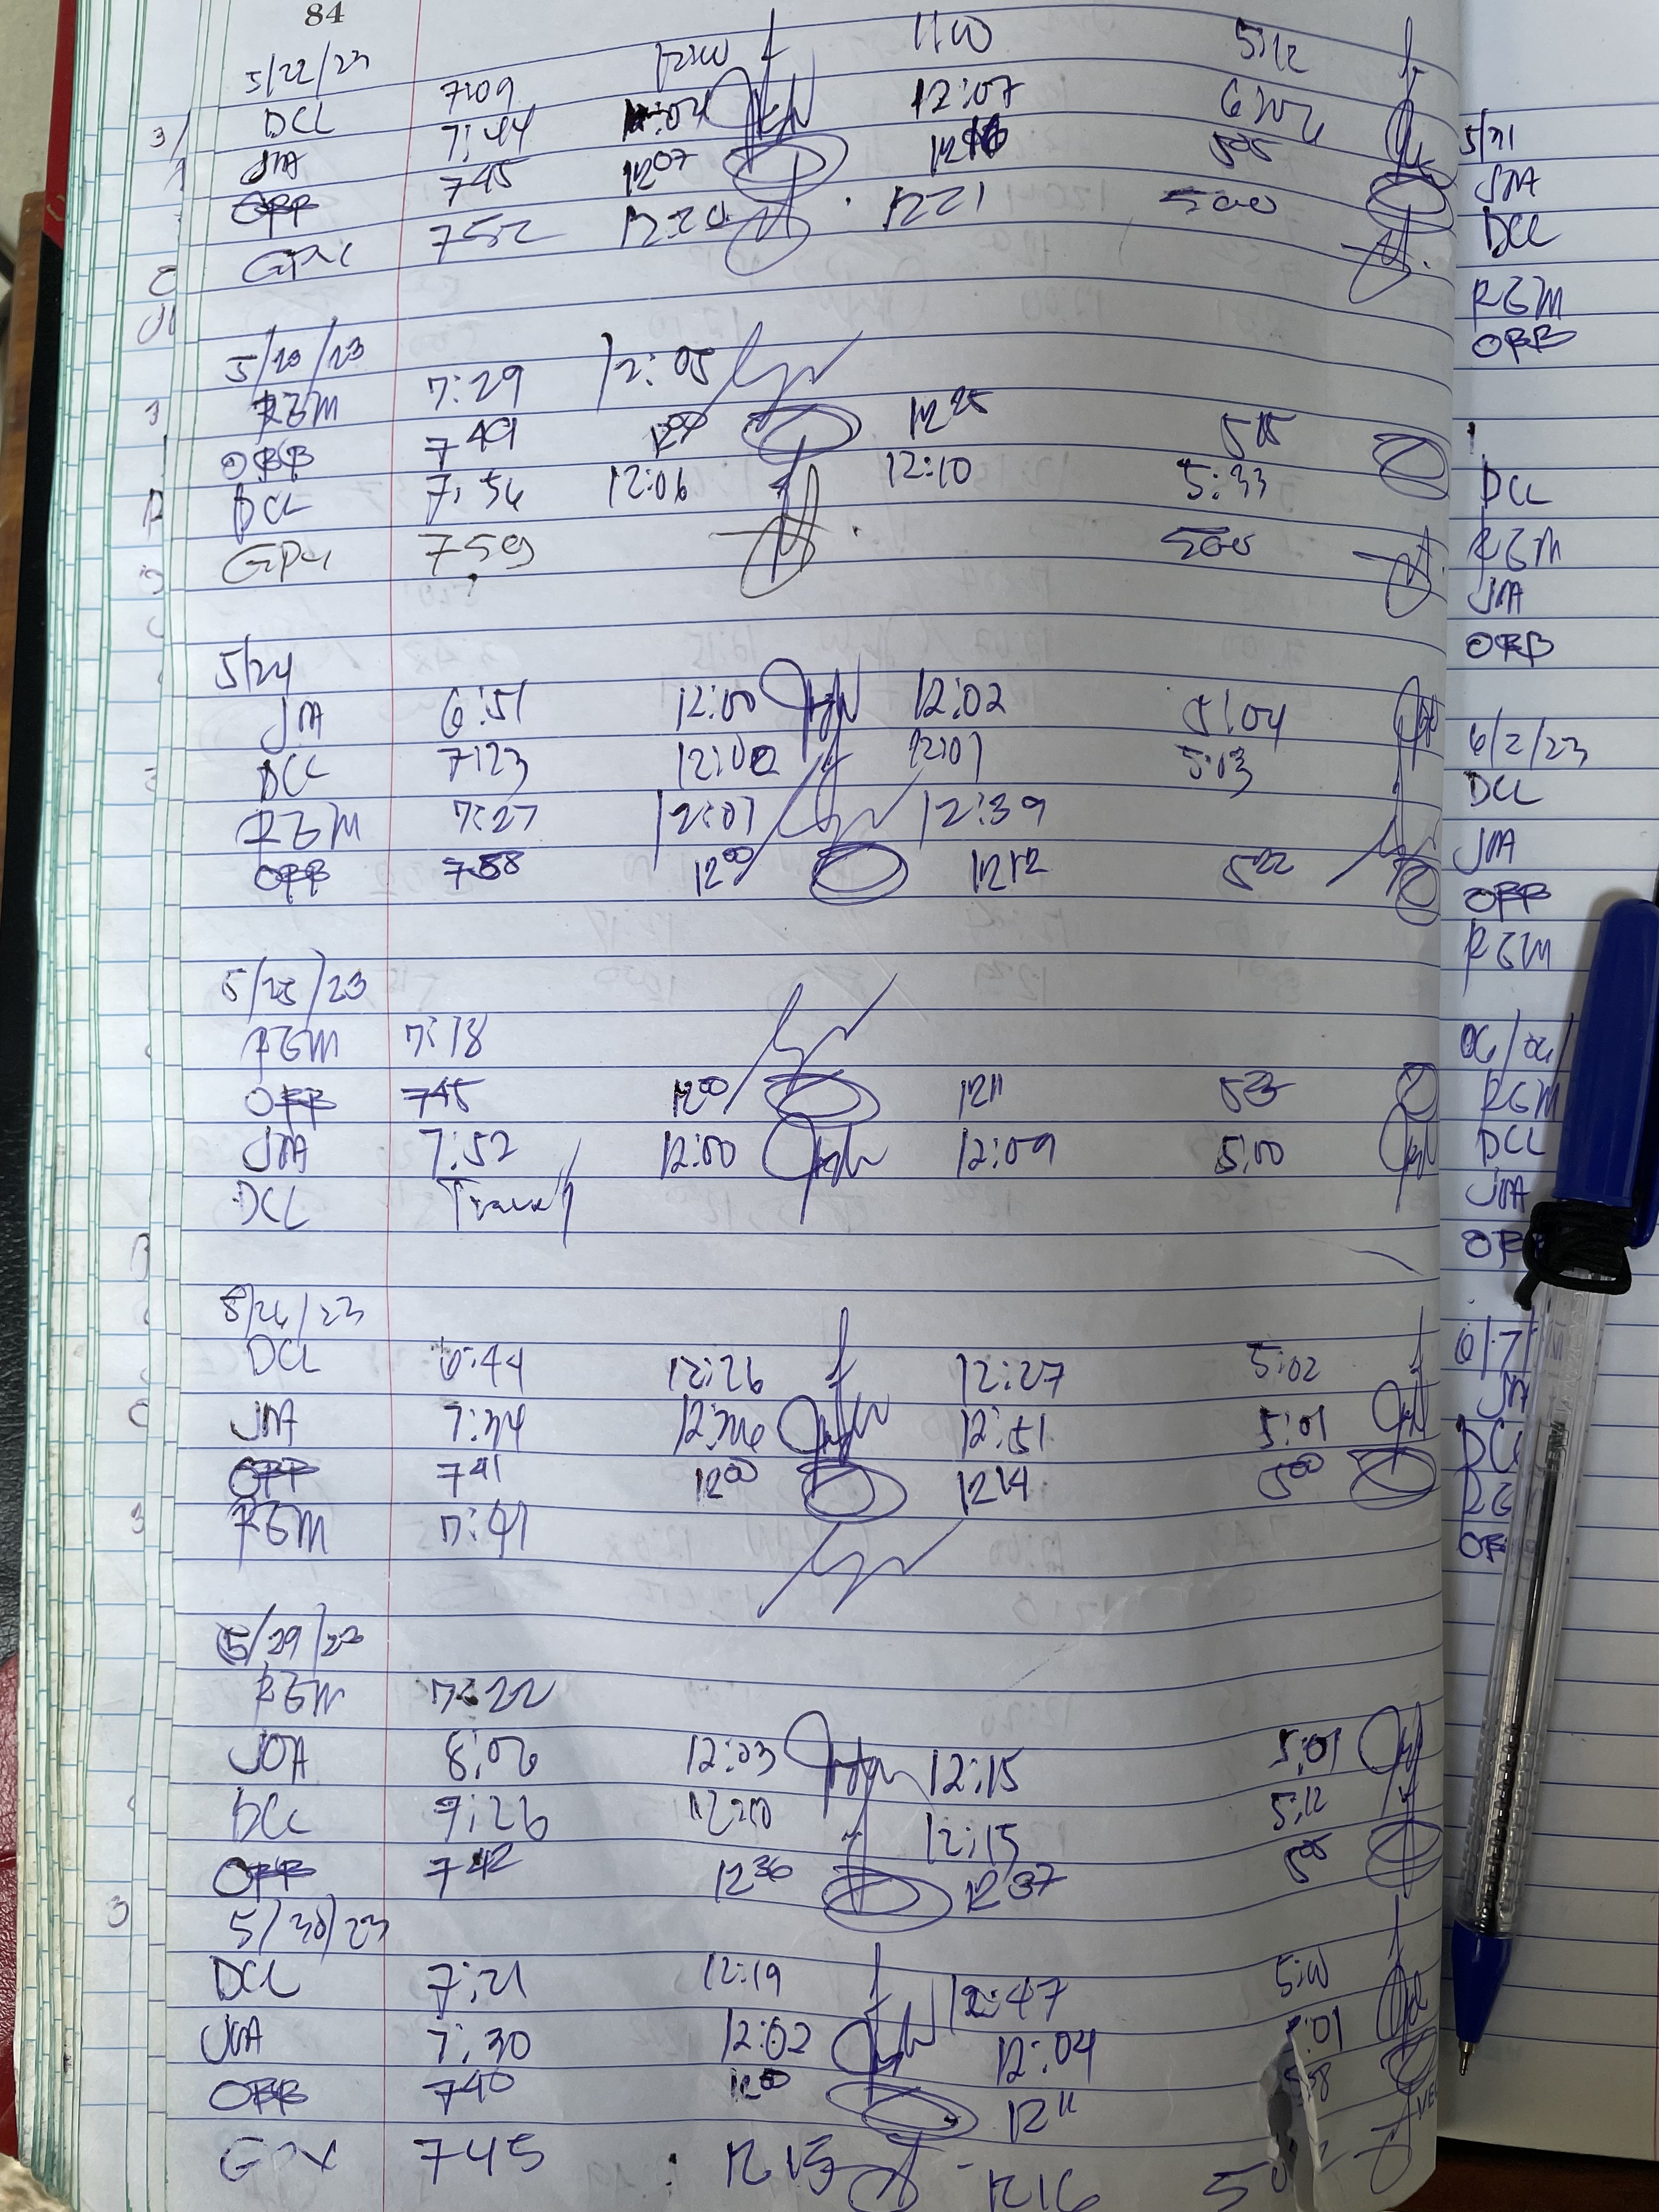 84
5/22/23
DCL 7:09 12:00 1100 5:12
JOA 7:44 12:07 6:02
OBB 745 1207 505
GPX 752 1220 1221 500
5/23/23
RGM 7:29 12:05
OBB 749 1225 515
DCL 7:56 12:06 12:10 5:33
GPX 759 500
5/24
JOA 6:51 12:00 12:02 5:04
DCL 7:23 12:02 12:01 5:13
RGM 7:27 12:01 12:39
OBB 758 1200 1212 522
5/25/23
RGM 7:18
OBB 745 1200 1211 523
JOA 7:52 12:00 12:09 5:00
DCL Travel
5/26/23
DCL 6:44 12:26 12:27 5:02
JOA 7:34 12:51 5:01
OBB 741 1200 1214 500
RGM 7:41
5/29/23
RGM 7:22
JOA 8:06 12:03 12:15 5:01
DCL 9:26 12:15 5:12
OBB 742 1236 1237 505
5/30/23
DCL 7:21 12:19 12:47 5:00
JOA 7:30 12:02 12:04 :01
OBB 740 1200 1211
GPX 745 1215 1216
5/31
JOA
DCL
RGM
OBB
DCL
RGM
JOA
OBB
6/2/23
DCL
JOA
OBB
RGM
06/06/
RGM
DCL
JOA
OB
6/7/
JOA
DCL
RG
OB